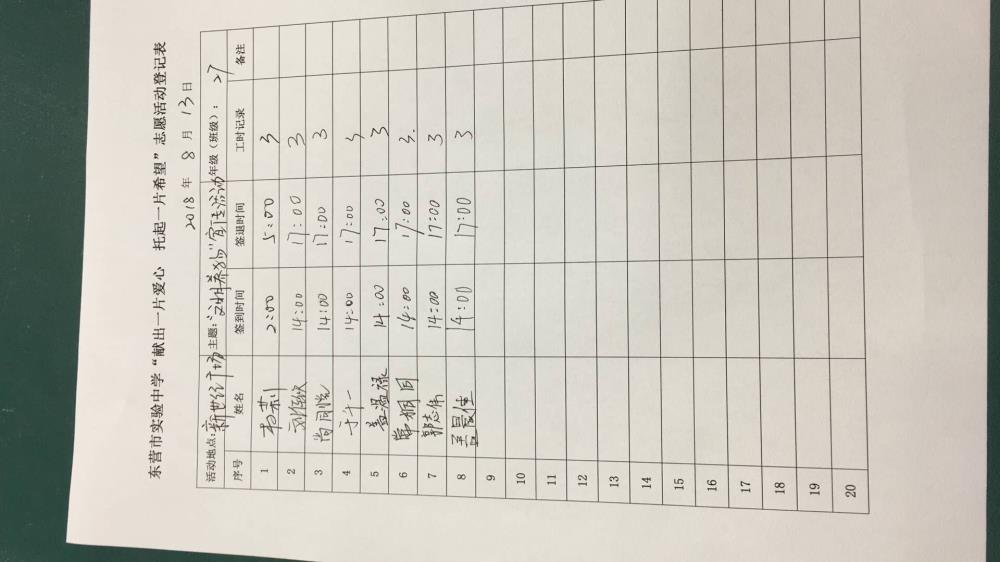 东营市实验中学“献出一片爱心 托起一片希望”志愿活动登记表
2018 年 8 月 13 日
活动地点：新世纪广场 主题：“文明养犬”宣传活动 年级（班级）：27
序号 姓名 签到时间 签退时间 工时记录 备注
1 杨莉 2:00 5:00 3
2 刘 14:00 17:00 3
3 尚同悦 14:00 17:00 3
4 于千一 14:00 17:00 3
5 孟温禄 14:00 17:00 3
6 常桐同 14:00 17:00 3.
7 郭志伟 14:00 17:00 3
8 孟昱佳 14:00 17:00 3
9
10
11
12
13
14
15
16
17
18
19
20